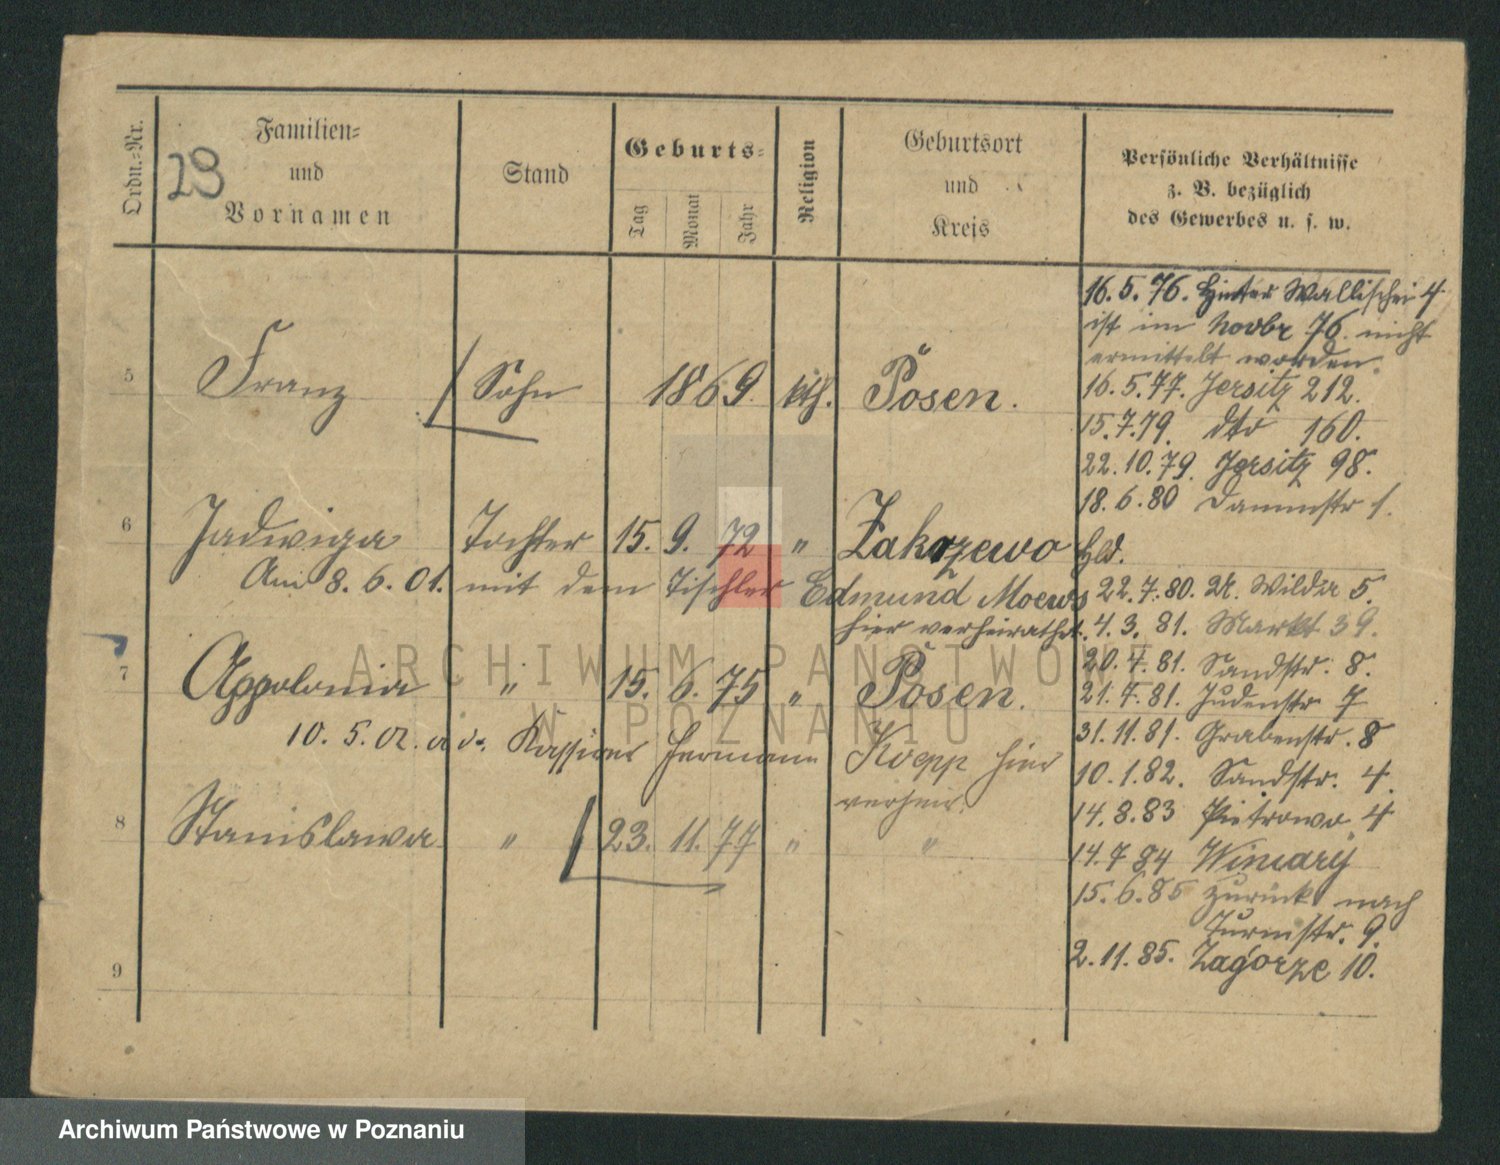 Ordn.-Nr.
Familien-
und
Vornamen
23
Stand
Geburts-
Tag
Monat
Jahr
Religion
Geburtsort
und
Kreis
Persönliche Verhältnisse
z. B. bezüglich
des Gewerbes u. s. w.
5 Franz Sohn 1869. kth. Posen.
6 Jadwiga Tochter 15. 9. 72 " Zakrzewo
Am 8. 6. 01. mit dem Tischler Edmund Moews
hier verheirathet.
7 Appolonia " 15. 6. 75 " Posen.
10. 5. 02. a. d. Kassierer Hermann Koepp hier
verheir.
8 Stanislawa " 23. 11. 77 " "
9
16. 5. 76. Hinter Wallischei 4
ist im Novbr 76. nicht
ermittelt worden.
16. 5. 77. Jersitz 212.
15. 7. 79. dto 160.
22. 10. 79. Jersitz 98.
18. 6. 80 Dammstr 1.
Hld.
22. 7. 80. U. Wilda 5.
4. 3. 81. Markt 39.
20. 4. 81. Sandstr. 8.
21. 7. 81. Judenstr 7
31. 11. 81. Grabenstr. 8
10. 1. 82. Sandstr. 4.
14. 8. 83 Pietrowo 4
14. 7 84 Winiary
15. 6. 85 zurück nach
Turmstr. 9.
2. 11. 85. Zagorze 10.
ARCHIWUM PAŃSTWOWE
W POZNANIU
Archiwum Państwowe w Poznaniu